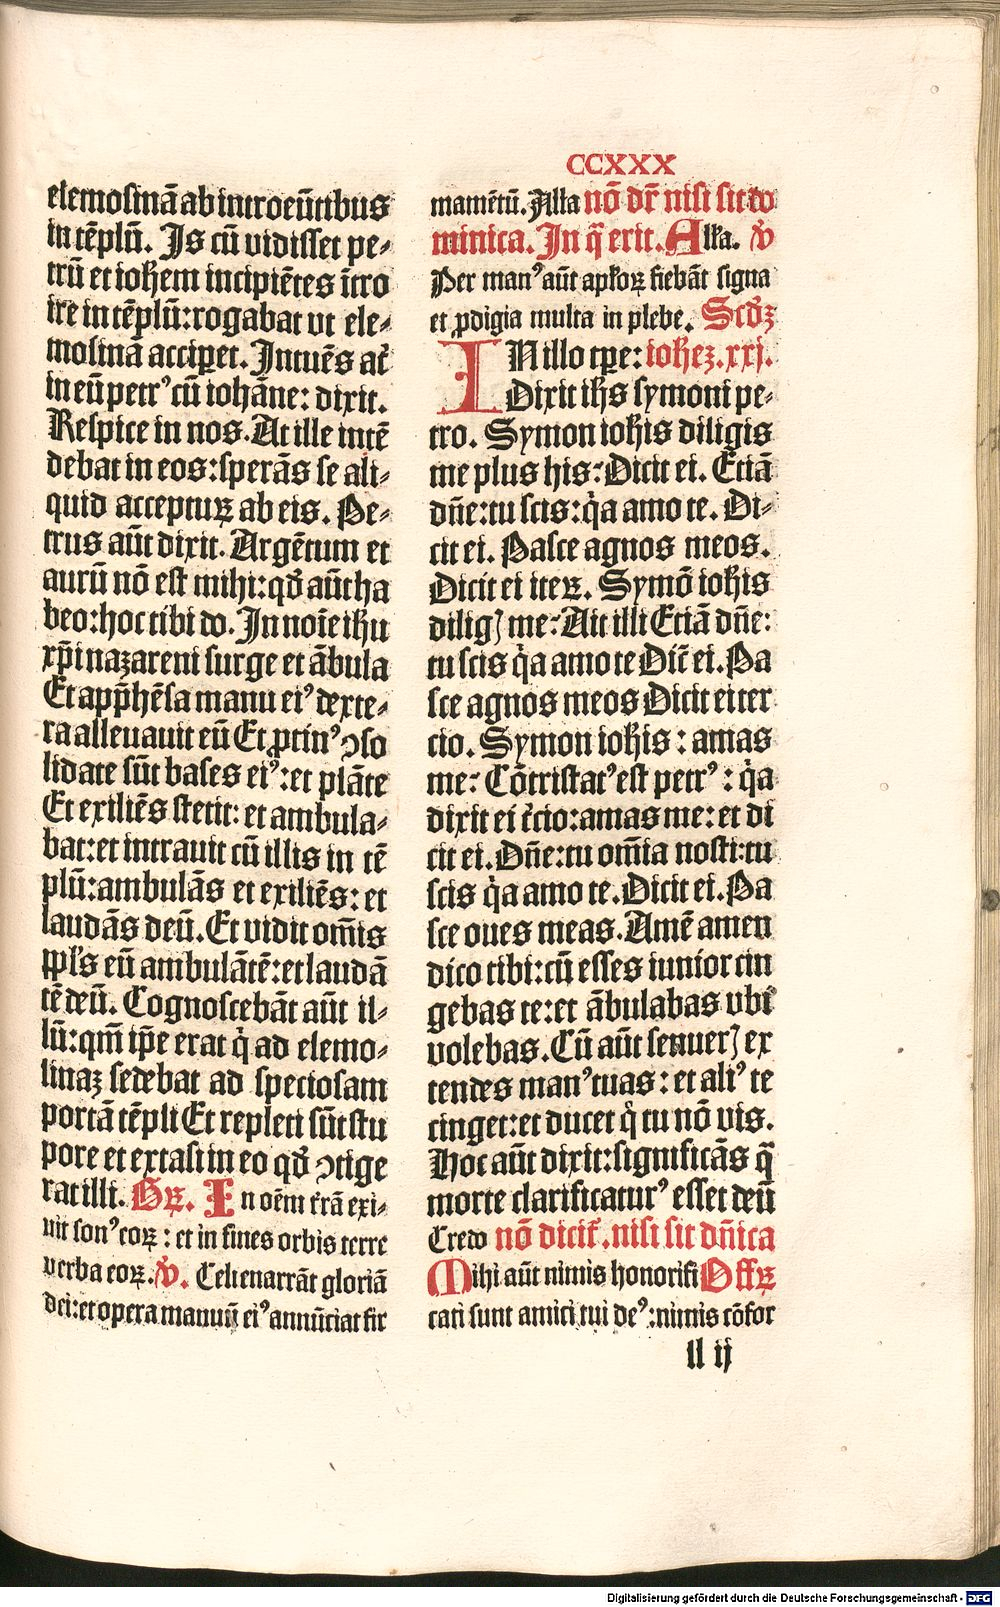 CCXXX
elemosinā ab introeūtibus
in tēplū. Is cū vidisset pe⸗
trū et ioħem incipiētes ītro
ire in tēplū: rogabat vt ele⸗
mosinā acciperet. Intuēs at̄
in eū petrꝰ cū iohāne: dixit.
Respice in nos. At ille intē
debat in eos: sperās se ali⸗
quid acceptuꝝ ab eis. Pe⸗
trus aūt dixit. Argētum et
aurū nō est mihi: qđ aūt ha
beo: hoc tibi do. In noīe ihu
xp̄i nazareni surge et ābula
Et app̄hēsa manu eiꝰ dexte⸗
ra alleuauit eū Et ꝓtinꝰ ↄso
lidate sūt bases eiꝰ: et plāte
Et exiliēs stetit: et ambula⸗
bat: et intrauit cū illis in tē
plū: ambulās et exiliēs: et
laudās deū. Et vidit om̄is
ppl̓s eū ambulātē: et laudā
tē deū. Cognoscebāt aūt il⸗
lū: qm̄ ip̄e erat q̇ ad elemo⸗
sinaꝫ sedebat ad speciosam
portā tēpli Et repleti sūt stu
pore et extasi in eo qđ ↄtige
rat illi. Gꝝ. In oēm t̄rā exi⸗
uit sonꝰ eoꝝ: et in fines orbis terre
verba eoꝝ. ℣. Celi enarrāt gloriā
dei: et opera manuū eiꝰ annūciat fir
mamētū. Alła nō dr̄ nisi sit do
minica. In q̄ erit. Alła. ℣
Per manꝰ aūt apłoꝝ fiebāt signa
et ꝓdigia multa in plebe. Scđꝫ
IN illo tꝑe: ioħeꝫ. xxj.
Dixit iħs symoni pe⸗
tro. Symon ioħis diligis
me plus his: Dicit ei. Etiā
dn̄e: tu scis: q̇a amo te. Di⸗
cit ei. Pasce agnos meos.
Dicit ei iteꝝ. Symō ioħis
diligꝭ me: Ait illi Etiā dn̄e:
tu scis q̇a amo te Dic̄ ei. Pa
sce agnos meos Dicit ei ter
cio. Symon ioħis: amas
me: Cōtristatꝰ est petrꝰ: q̇a
dixit ei t̄cio: amas me: et di
cit ei. Dn̄e: tu om̄ia nosti: tu
scis q̇a amo te. Dicit ei. Pa
sce oues meas. Amē amen
dico tibi: cū esses iunior cin
gebas te: et ābulabas vbi
volebas. Cū aūt senuerꝭ ex
tendes manꝰ tuas: et aliꝰ te
cinget: et ducet q̇ tu nō vis.
Hoc aūt dixit: significās q̄
morte clarificaturꝰ esset deū
Credo nō dicit̄. nisi sit dn̄ica
Mihi aūt nimis honorifi Offꝝ
cati sunt amici tui deꝰ: nimis cōfor
ll ij
Digitalisierung gefördert durch die Deutsche Forschungsgemeinschaft - DFG